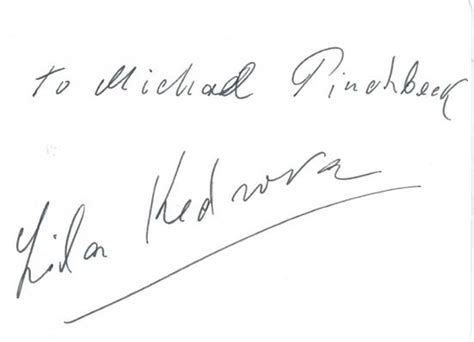 to Michael Pinchbeck
Lila Kedrova